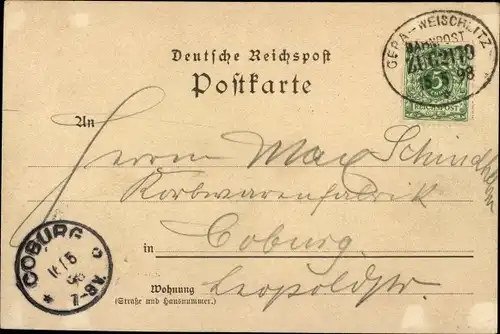 GERA-WEISCHLITZ
BAHNPOST
ZUG
98
5
REICHSPOST
Deutsche Reichspost
Postkarte
An
Herrn Max
Korbwarenfabrik
in Coburg
Wohnung Leopoldstr.
(Straße und Hausnummer.)
COBURG
7-8V.